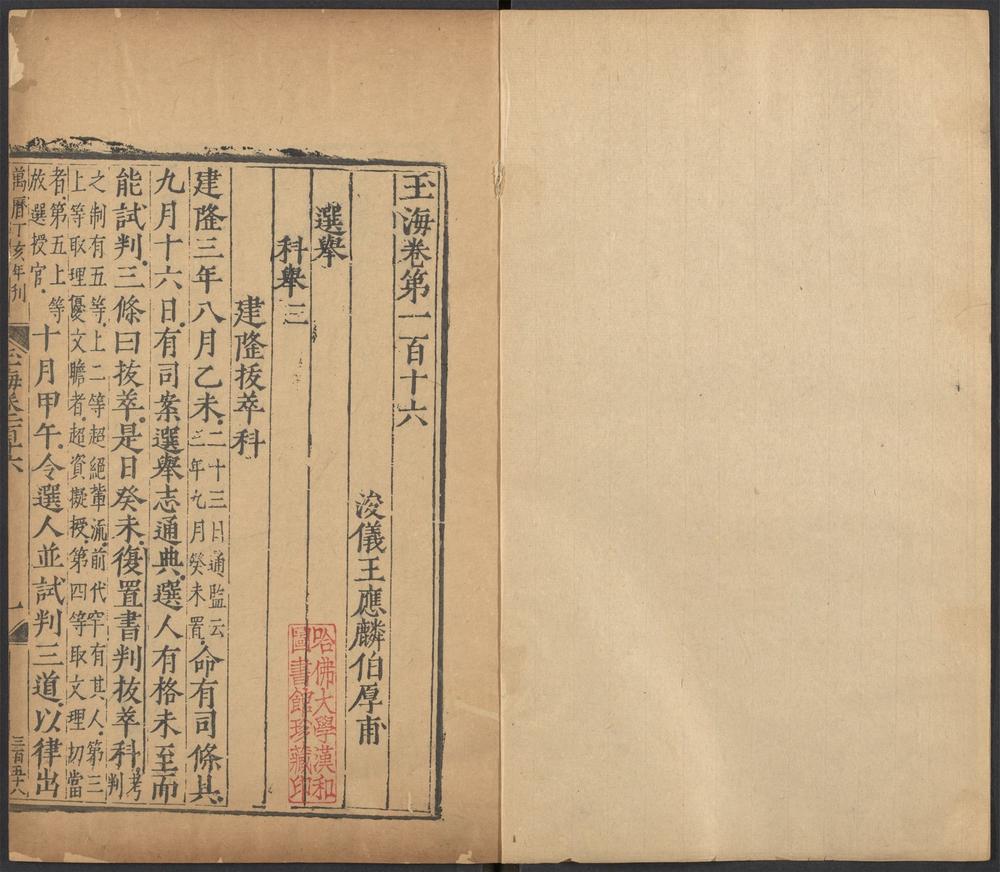 玉海卷第一百十六
浚儀王應麟伯厚甫
選舉
科舉三
建隆拔萃科
建隆三年八月乙未二十三日通監云三年九月癸未置命有司條具
九月十六日有司案選舉志通典選人有格未至而
能試判三條曰拔萃是日癸未復置書判拔萃科考判
之制有五等上二等超絕輩流前代罕有其人第三
上等取理優文贍者超資擬授第四等取文理切當
者第五上等
放選授官十月甲午令選人並試判三道以律出
萬曆丁亥年刊
玉海卷一百十六
三百五十八
哈佛大學漢和
圖書館珍藏印